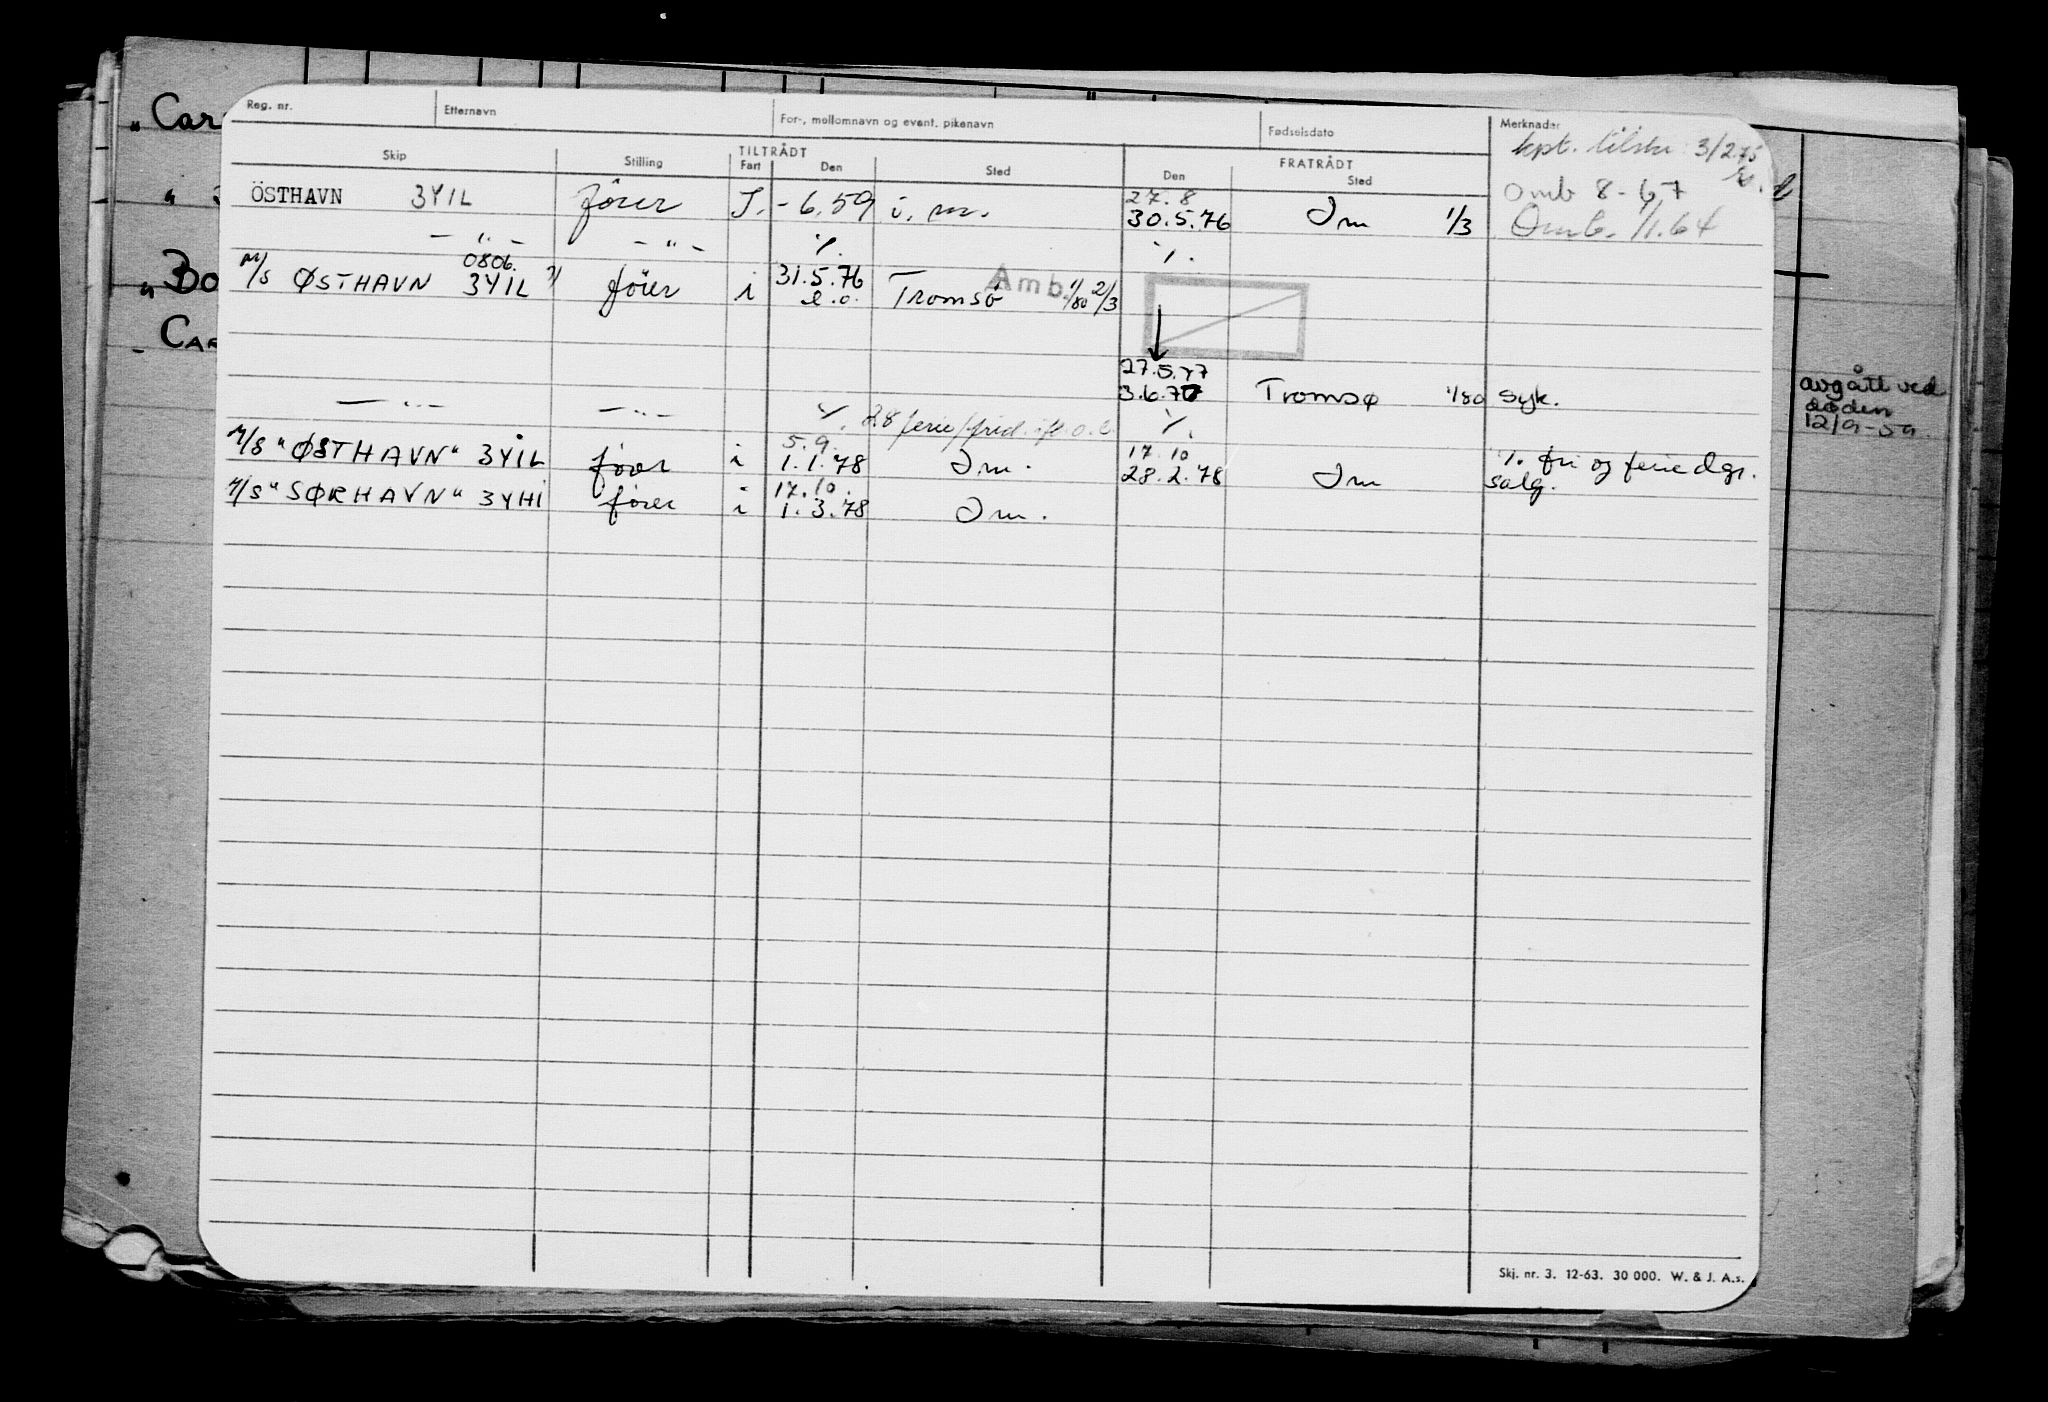 Reg. nr. Etternavn For-, mellomnavn og event. pikenavn Fødselsdato Merknader
kpt. 3/2.75
TILTRÅDT FRATRÅDT
Skip Stilling Fart Den Sted Den Sted
27.8 Omb 8-67
ÖSTHAVN 3YIL fører I. -6.59 i.m. 30.5.76 Im 1/3 Omb. 1/1.64
— " — — " — ./. ./.
0806.
M/S ØSTHAVN 3YIL fører i 31.5.76 Tromsö Amb. 1/80 2/3
e.o.
27.5.77
3.6.77 Tromsø 1/80 syk.
— " — — " — ./. 28 ferie/frid. ./.
5.9. 17.10
M/S "ØSTHAVN" 3YIL fører i 1.1.78 Im. 28.2.78 Im ./. fri og ferie dgr.
salg.
17.10.
M/S "SØRHAVN" 3YHI fører i 1.3.78 Im.
Skj. nr. 3. 12-63. 30 000. W. & J. A.s.
"Car
"Bo
- CAR
avgått ved
døden
12/9-59